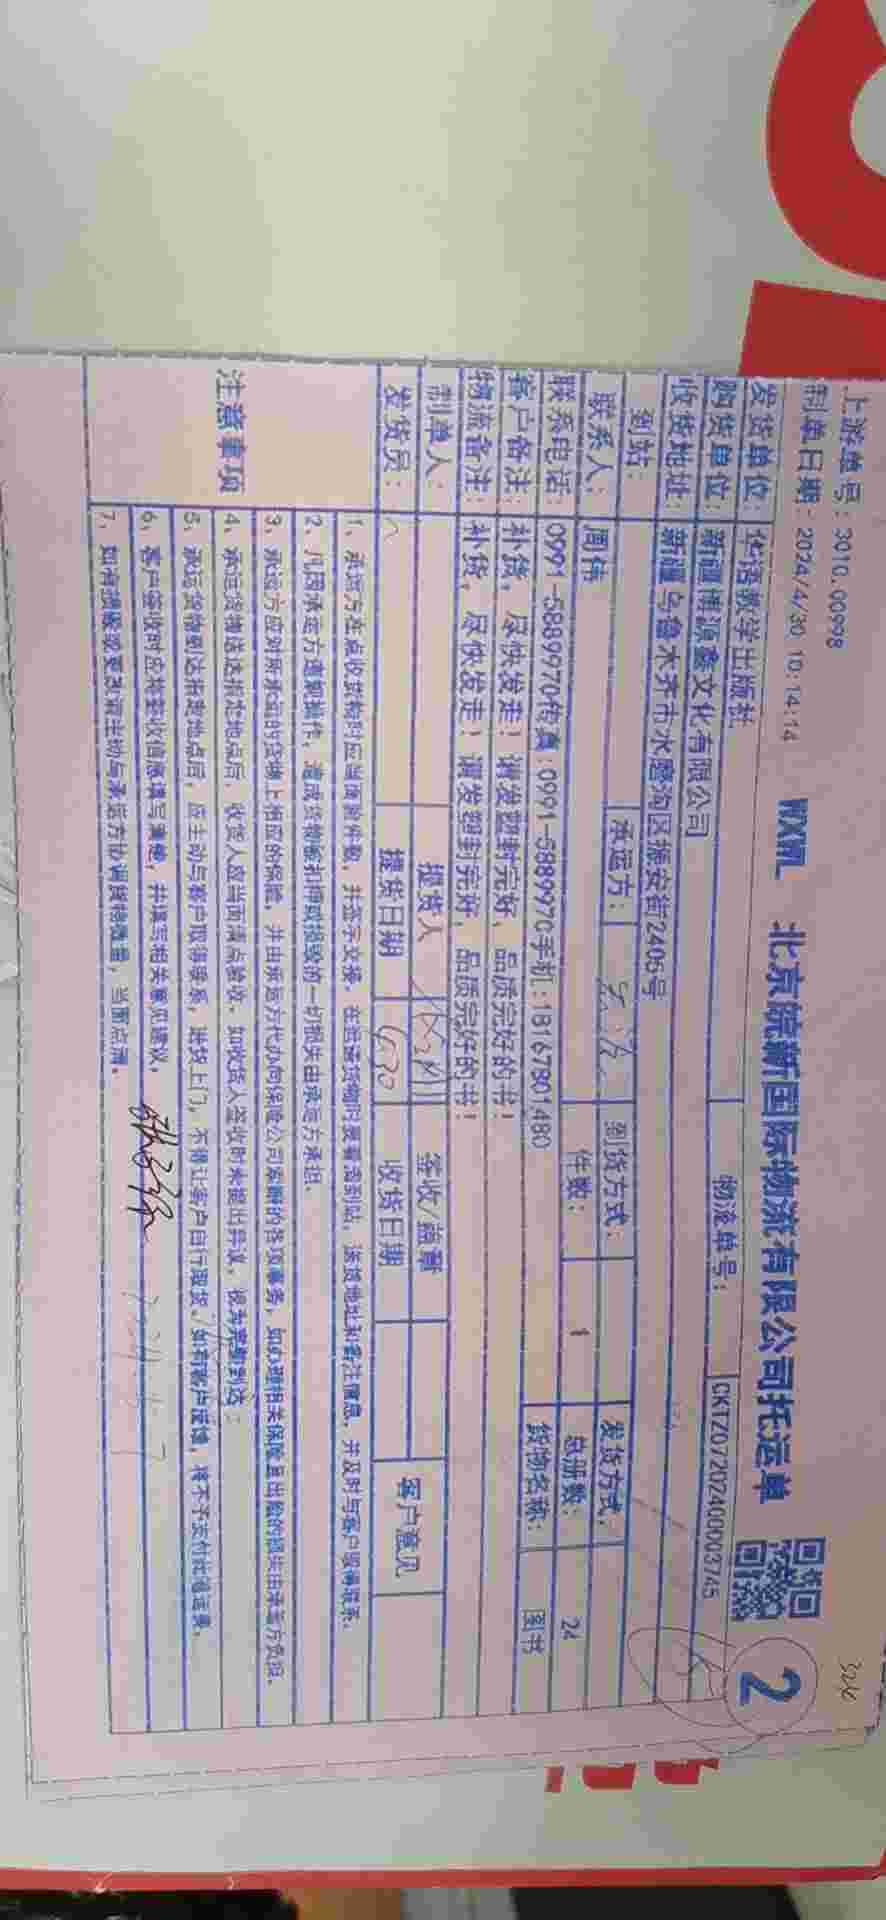 上游单号：3010.00998
制单日期：2024/4/30 10:14:14
WXWL 北京皖新国际物流有限公司托运单
2
发货单位：华语教学出版社
购货单位：新疆博源鑫文化有限公司 物流单号：CKTZ07202400003745
收货地址：新疆乌鲁木齐市水磨沟区振安街2405号
到站： 承运方： 到货方式： 发货方式：
联系人：周伟 件数：1 总册数：24
联系电话：0991-5889970传真:0991-5889970手机:18167801480 货物名称：图书
客户备注：补货，尽快发走！请发塑封完好，品质完好的书！
物流备注：补货，尽快发走！请发塑封完好，品质完好的书！
制单人： 提货人 签收/盖章 客户意见
发货员： 提货日期 430 收货日期
注意事项
1、承运方在点收货物时应当面验件数，并签字交接。在托运货物时要看清到站、送货地址和备注信息，并及时与客户取得联系.
2、凡因承运方违规操作，造成货物被扣押或损毁的一切损失由承运方承担.
3、承运方应对所承运的货物上相应的保险，并由承运方代办向保险公司索赔的各项事务，如办理相关保险且出险的损失由承运方负担.
4、承运货物送达指定地点后，收货人应当面清点验收，如收货人签收时未提出异议，视为完整到达；
5、承运货物到达指定地点后，应主动与客户取得联系，送货上门，不得让客户自行取货.如有客户反馈，将不予支付此笔运费。
6、客户签收时应将签收信息填写完整，并填写相关意见建议。
7、如有损坏或更改需主动与承运方协调货物数量，当面点清。